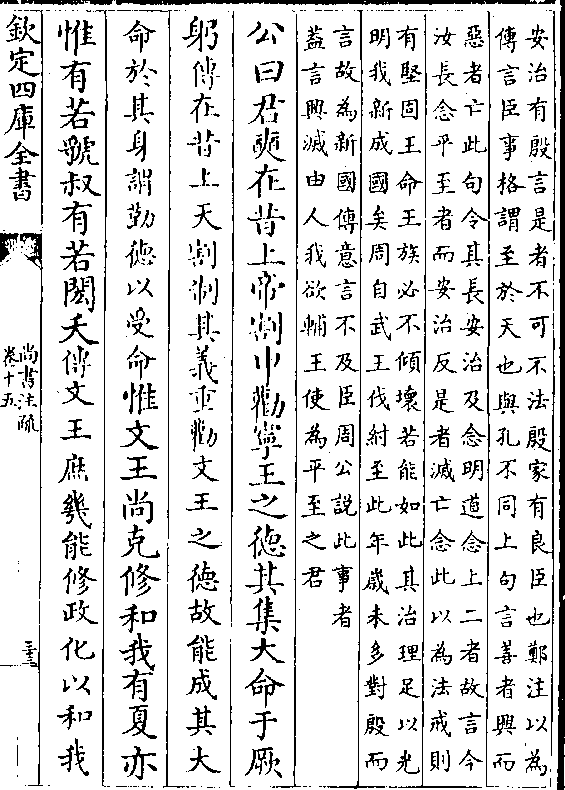 安治有殷言是者不可不法殷家有良臣也鄭注以為
傳言臣事格謂至於天也與孔不同上句言善者興而
惡者亡此句令其長安治及念明道念上二者故言今
汝長念平至者而安治反是者滅亡念此以為法戒則
有堅固王命王族必不傾壞若能如此其治理足以光
明我新成國矣周自武王伐紂至此年歲未多對殷而
言故為新國傳意言不及臣周公說此事者
蓋言興滅由人我欲輔王使為平至之君
公曰君奭在昔上帝割申勸寧王之德其集大命于厥
躬傳在昔上天割制其義重勸文王之德故能成其大
命於其身謂勤德以受命惟文王尚克修和我有夏亦
惟有若虢叔有若閎夭傳文王庶幾能修政化以和我
欽定四庫全書
尚書注疏
卷十五
二十三